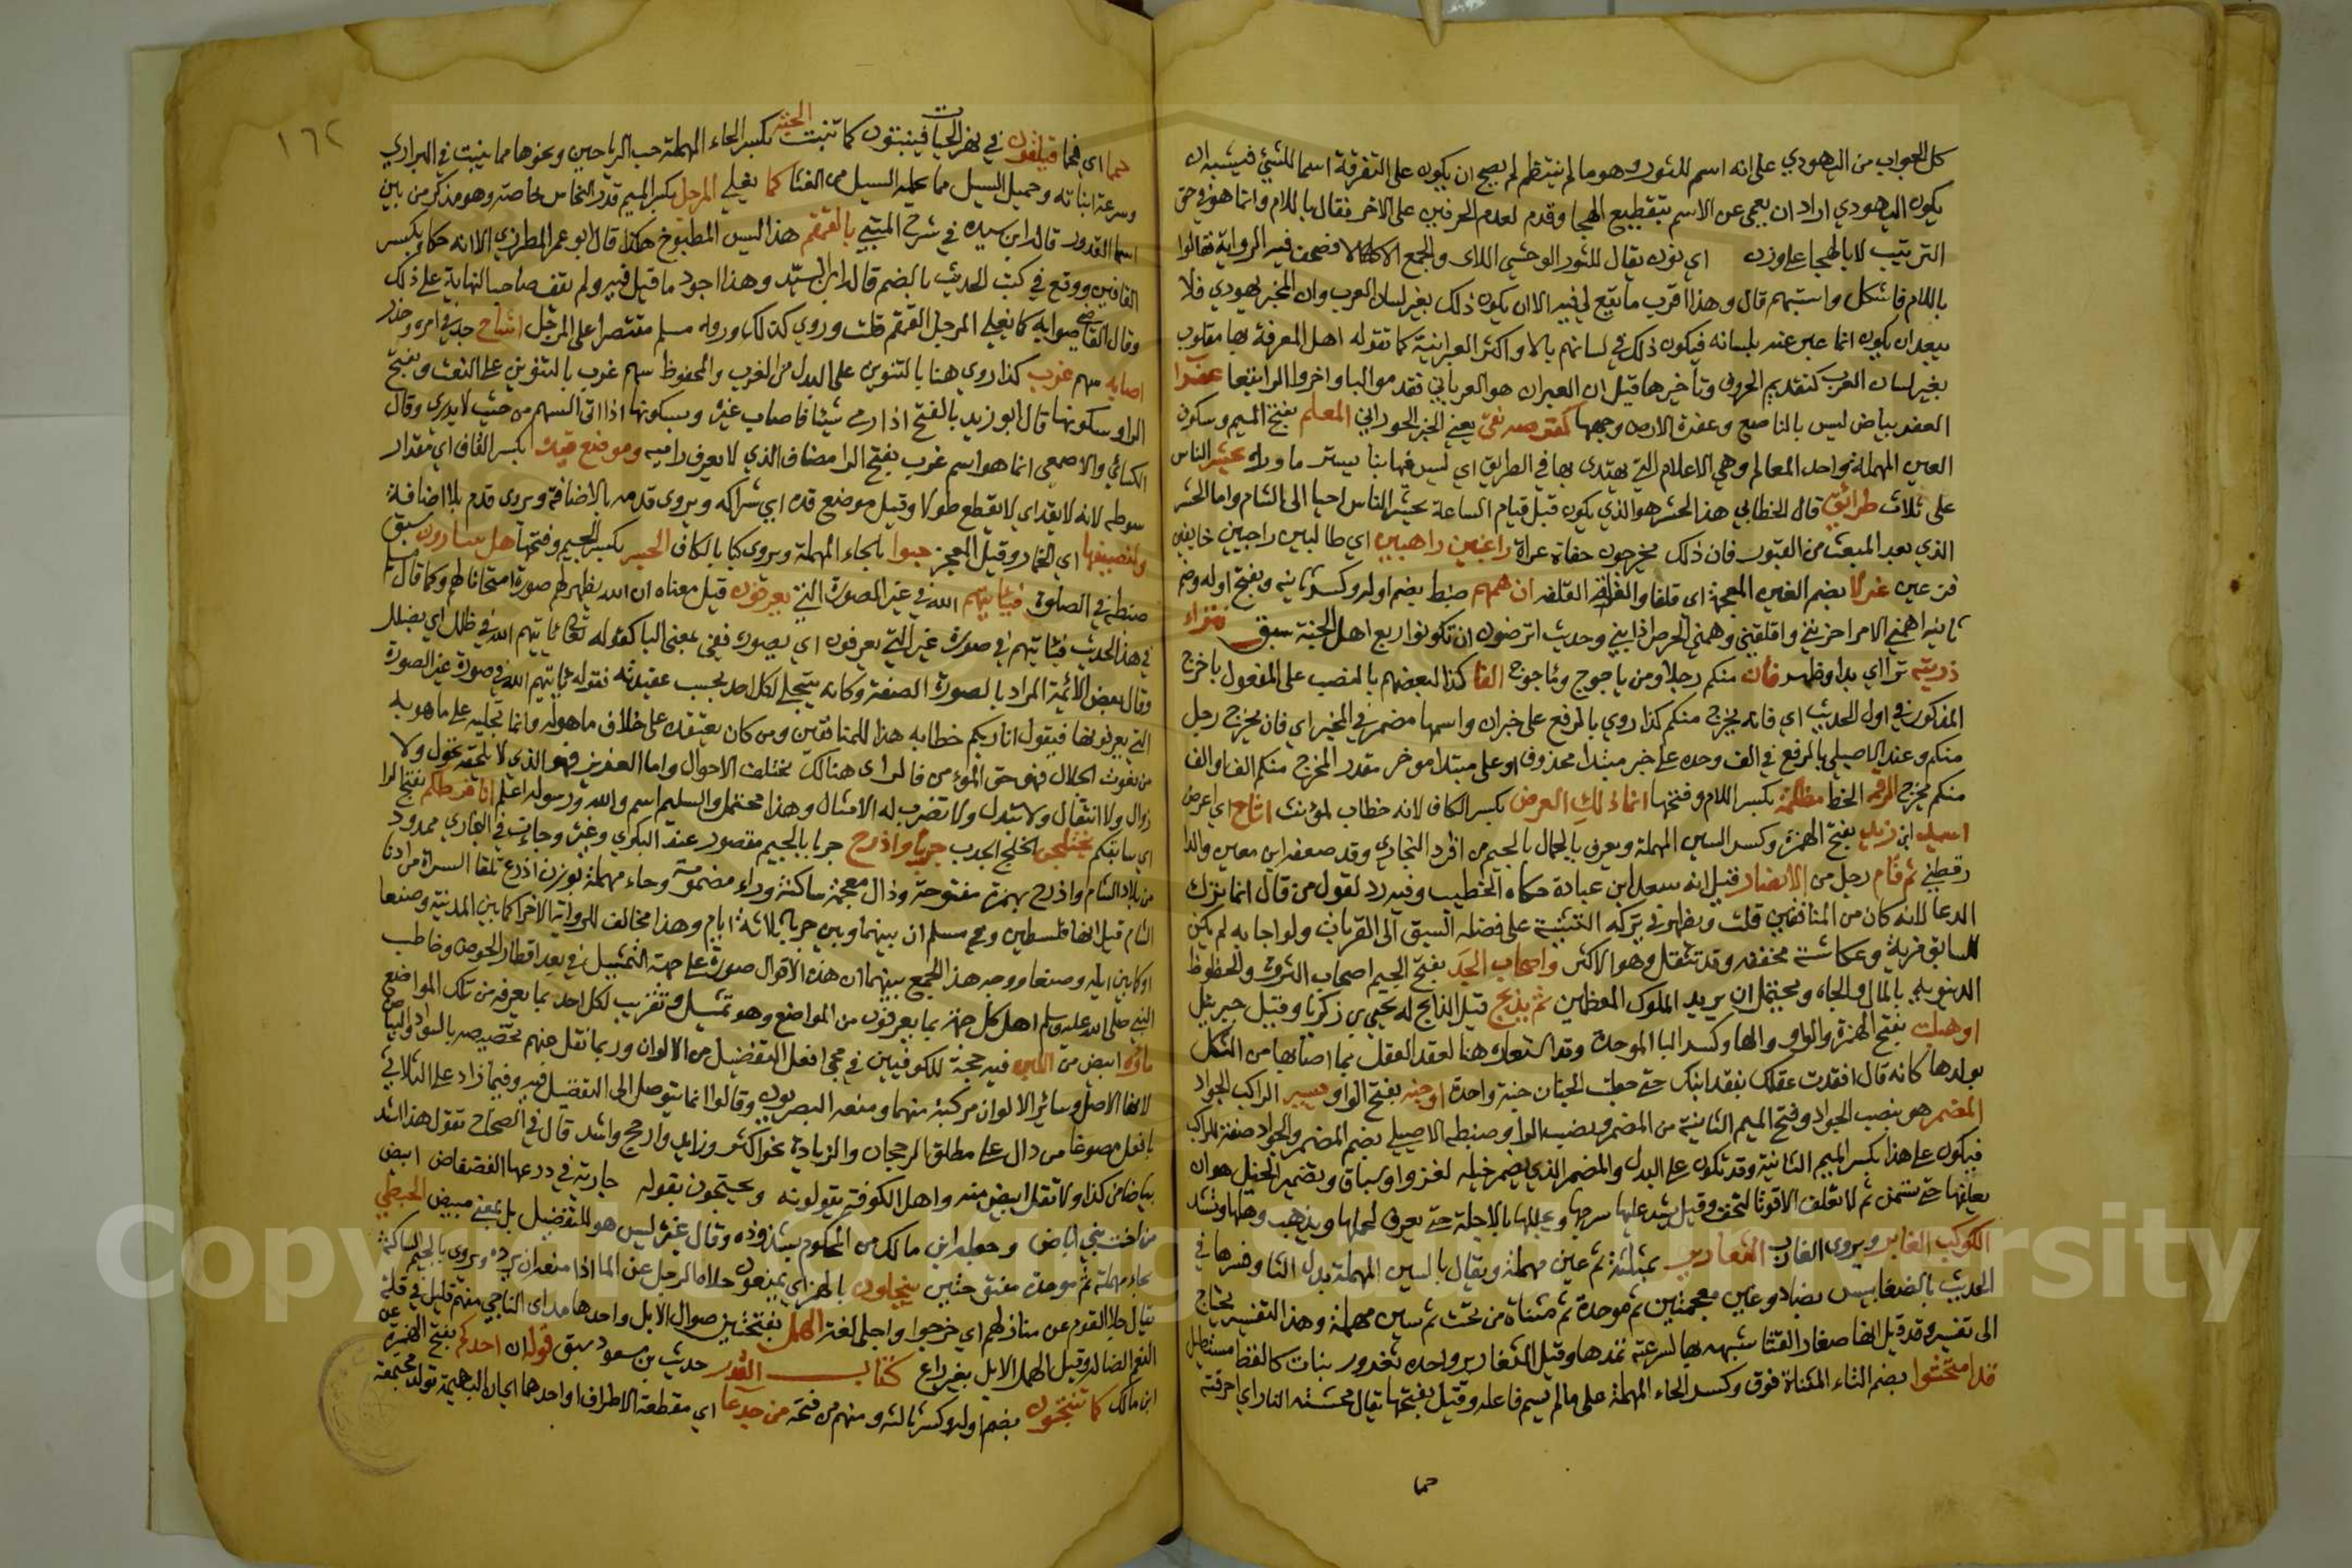 كل العواب من اليهودي على انه اسم للثور وهو ما لم ينتظم لم يصح ان يكون على التفرقة اسما للشئ فيشبه ان
يكون اليهودي اراد ان يعمي عن الاسم بتقطيع الهجا وقدم لعدم الحرفين على الاخر فقال بالام وانما هو في حق
الترتيب لا يا الهجا على وزن اي نون يقال للثور الوحشي اللاى والجمع فصحف فيه الرواية فقالوا
باللام فاشكل واستبهم قال وهذا اقرب ما يقع لي فيه الا ان يكون ذلك بغير لسان العرب وان المخبر يهودي فلا
يبعد ان يكون انما عبر عنه بلسانه فيكون ذلك في لسانهم بالا واكثر العبرانية كما تقوله اهل المعرفة بها مقلوب
بغير لسان العرب كتقديم الحروف وتأخيرها قيل ان العبران هو العرباني فقدموا البا واخروا الرا بقعا عفرا
العفر بياض ليس بالناصع وعفرة الارض وجهها كقرصة نقي يعني الخبز الحوراني المعلم بفتح الميم وسكون
العين المهملة واحد المعالم وهي الاعلام التي يهتدى بها في الطريق اي ليس فيها بنا يستر ما وراه يحشر الناس
على ثلاث طرائق قال الخطابي هذا الحشر هو الذي يكون قبل قيام الساعة يحشر الناس احيا الى الشام واما الحشر
الذي بعد المبعث من القبور فان ذلك يخرجون حفاة عراة راغبين راهبين اي طالبين راجيين خايفين
عين غرلا بضم الغين المعجمة اي قلفا والغرلة القلفة ان يهمهم ضبط بضم اوله وكسر ثانيه وبفتح اوله وضم
ثانيه اهمني الامر احزنني واقلقني وهمني المرض اذابني وحديث اترضون ان تكونوا ربع اهل الجنة سبق فتراء
ذريته ترا اي بدا وظهر فان منكم رجلا ومن ياجوج وماجوج الفا كذا لبعضهم بالنصب على المفعول باخرج
المذكور في اول الحديث اي فانه يخرج منكم كذا روي بالرفع على خبر ان واسمها مضمر في المخبر اي فان يخرج رجل
منكم وعند الاصيلي بالرفع في الف وحده على خبر مبتدا محذوف او على مبتدا مؤخر مقدر المخرج منكم الف او الف
منكم يخرج الرقمة الخط مظلمة بكسر اللام وفتحها انما ذلك العرض بكسر الكاف لانه خطاب لمؤنث اشاح اي اعرض
اسيد ابن زيد بفتح الهمزة وكسر السين المهملة ويعرف بالجمال بالجيم من افراد البخاري وقد ضعفه ابن معين والدا
رقطني ثم قام رجل من الانصار قيل انه سعد ابن عبادة حكاه الخطيب وفيه رد لقول من قال انما ترك
الدعا لانه كان من المنافقين قلت ويظهر في تركه التنبيه على فضله السبق الى القربات ولو اجابه لم يكن
للسابق مزية وعكاشة مخففه وقد تثقل وهو الاكثر واصحاب الجد بفتح الجيم اصحاب الثروة والحظوظ
الدنيوية بالمال والجاه ويحتمل ان يريد الملوك المعظمين ثم يذبح قيل الذابح له يحيى بن زكريا وقيل جبريل
اوهبلت بفتح الهمزة والواو والها وكسر البا الموحدة وقد استعاره هنا لفقد العقل بما اصابها من الثكل
بولدها كانه قال افقدت عقلك بفقد ابنك حتى جعلت الجنان جنة واحدة اوجنة بفتح الواو يسير الراكب الجواد
المضمر هو بنصب الجواد وفتح الميم الثانية من المضمر ونصب الرا وضبطه الاصيلي بضم المضمر والجواد صفة للراكب
فيكون على هذا بكسر الميم الثانية وقد تكون على البدل والمضمر الذي يضمر خيله لغزو او سباق وتضمير الخيل هو ان
يعلفها حتى تسمن ثم لا تعلف الا قوتا لتخف وقيل يشد عليها سرجها ويجللها بالاجلة حتى يعرق لحملها ويذهب رهلها وتشتد
الكوكب الغابر ويروى الغارب الثعارير بمثلثة ثم عين مهملة ويقال بالسين المهملة بدل الثا وفسرها في
الحديث بالضغابيس بضاد وغين معجمتين ثم موحدة ثم مثناة من تحت ثم سين مهملة وهذا التفسير يحتاج
الى تفسير وقد قيل انها صغار القثا شبهه بها لسرعة نموها وقيل الثعارير واحده ثعرور بنات كالقطا مستطيل
قد امتحشوا بضم التاء المثناة فوق وكسر الحاء المهملة على ما لم يسم فاعله وقيل بفتحها يقال محشته النار اي احرقته
حما
١٦٢
حما اي فحما فيلقون في نهر الحيات فينبتون كما تنبت الحبة بكسر الحاء المهملة حب الرياحين ونحوها مما ينبت في البراري
وسرعة انباته وحميل السيل مما يحمله السيل من الغثا كما يغلي المرجل بكسر الميم قدر النحاس خاصة وهو مذكر من بين
اسما القدور قاله ابن سيده في شرح المتنبي بالقمقم هذا ليس المطبوخ هكذا قال ابو عمر المطرزي الا انه حكاه بكسر
القافين ووقع في كتب الحديث بالضم قاله ابن السيد وهذا اجود ما قيل فيه ولم يقف صاحب النهاية على ذلك
وقال القاضي صوابه كما يغلي المرجل القمقم قلت وروي كذلك ورواه مسلم مقتصرا على المرجل اشاح جد في امره وحذر
اصابه سهم غرب كذا روي هنا بالتنوين على البدل من الغرب والمحفوظ سهم غرب بالتنوين على النعت وبفتح
الرا وسكونها قال ابو زيد بالفتح اذا رمى شيئا فاصاب غيره وبسكونها اذا اتى السهم من حيث لا يدري وقال
الكسائي والاصمعي انما هو اسم غرب بفتح الرا مضاف الذي لا يعرف راميه وموضع قيده بكسر القاف اي مقدار
سوطه لانه لا يقد اي لا يقطع طولا وقيل موضع قده اي شراكه ويروى قدمه بالاضافة ويروى قدم بلا اضافة
ولنصيفها اي الخمار وقيل المعجر حبوا بالحاء المهملة ويروى كبا بالكاف الجسر بكسر الجيم وفتحها هل تضارون سبق
ضبطه في الصلوة فياتيهم الله في غير الصورة التي يعرفون قيل معناه ان الله يظهر لهم صورة امتحانا لهم وكما قال
في هذا الحديث فياتيهم في صورة غير التي يعرفون اي بصورة ففي بمعنى البا كقوله تعالى ياتيهم الله في ظلل اي بظلل
وقال بعض الائمة المراد بالصورة الصفة وكانه يتجلى لكل احد بحسب عقيدته فقوله ياتيهم الله في صورة غير الصورة
التي يعرفونها فيقول انا ربكم خطابه هذا للمنافقين ومن كان يعتقده على خلاف ما هو له وانما تجليه على ما هو به
من نعوت الجلال فهو حق المؤمن فالراى هنالك تختلف الاحوال واما العزيز فهو الذي لا يلحقه تحول ولا
زوال ولا انتقال ولا تبدل ولا تضرب له الامثال وهذا محتمل والتسليم اسلم والله ورسوله اعلم انا فرطكم بفتح الرا
اي سابقكم يختلجن الخلج الجدب جربا واذرح جربا بالجيم مقصور عند البكري وغيره وجات في البخاري ممدود
من بلاد الشام واذرح بهمزة مفتوحة وذال معجمة ساكنة وراء مضمومة وحاء مهملة بوزن اذرع تلقا السراة من ادنا
الشام قيل انها فلسطين وفي مسلم ان بينهما وبين جربا ثلاثة ايام وهذا مخالف للرواية الاخرى كما بين المدينة وصنعا
او كما بين ايلة وصنعا ووجه هذا الجمع بينهما ان هذه الاقوال صورة على جهة التمثيل في بعد اقطار الحوض وخاطب
النبي صلى الله عليه وسلم اهل كل جهة بما يعرفون من المواضع وهو تمثيل وتقريب لكل احد بما يعرفه من تلك المواضع
ماؤه ابيض من اللبن فيه حجة للكوفيين في مجي افعل التفضيل من الالوان وربما نقل عنهم تخصيصه بالسواد والبياض
لانها الاصل وسائر الالوان مركبة منهما ومنعه البصريون وقالوا انما يتوصل الى التفضيل فيه وفيما زاد على الثلاثي
بافعل مصوغا من دال على مطلق الرجحان والزيادة نحو اكثر وزايد وارجح واشد قال في الصحاح تقول هذا اشد
بياضا من كذا ولا تقل ابيض منه واهل الكوفة يقولونه ويحتجون بقوله جارية في درعها الفضفاض ابيض
من اخت بني اباض وجعله ابن مالك من المحكوم بشذوذه وقال غيره ليس هو للتفضيل بل بمعنى مبيض الحبطي
بحاء مهملة ثم موحدة مفتوحتين يجلون بالهمز اي يمنعون حلاه الرجل عن الماء اذا منعه ان يرده ويروى بالجيم الساكنة
يقال جلا القوم عن منازلهم اي خرجوا واجلى لغة الهمل بفتحتين ضوال الابل واحدها هامل اي الناجي منهم قليل في قلة
النعم الضالة وقيل الهمل الابل بغير راع كتاب القدر حديث بن مسعود سبق قوله ان احدكم بفتح الهمزة عن
ابن مالك كما تنتجون بضم اوله وكسر ثالثه ومنهم من فتحه من جدعا اي مقطعة الاطراف او احدها اي ان البهيمة تولد مجتمعة
Copyright © King Saud University